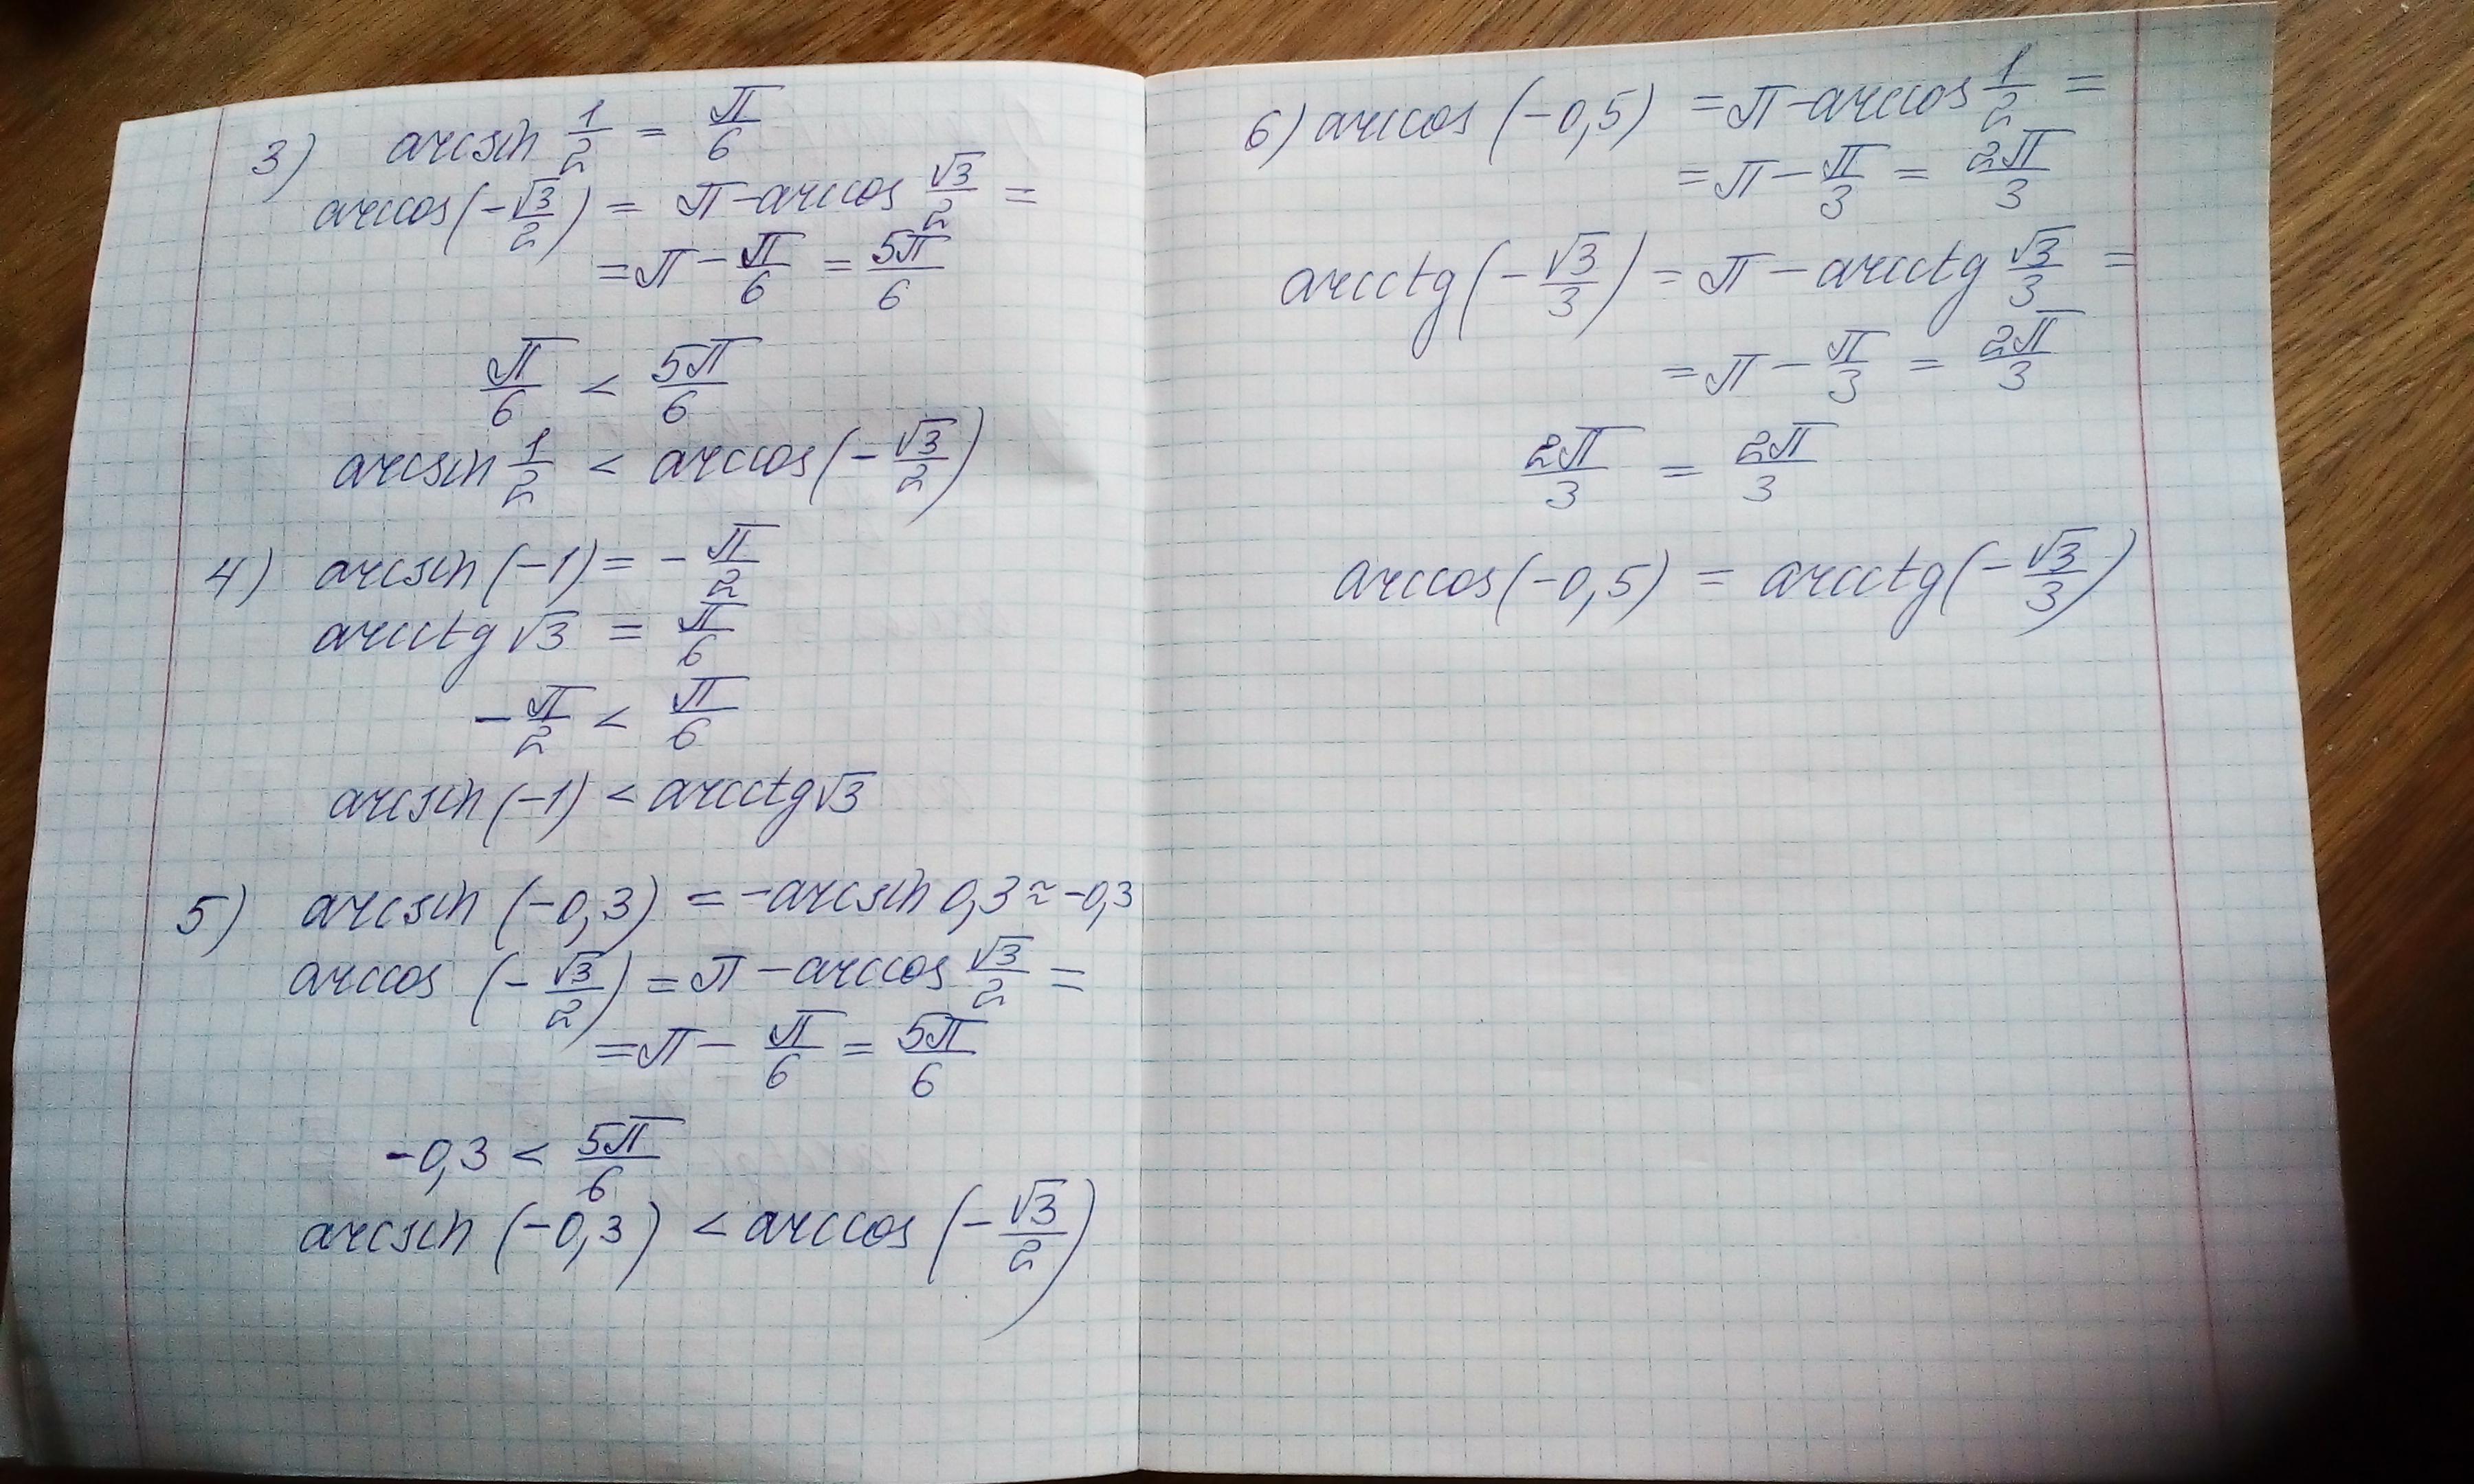 3) arcsin 1/2 = π/6
arccos(-√3/2) = π - arccos √3/2 =
= π - π/6 = 5π/6
π/6 < 5π/6
arcsin 1/2 < arccos(-√3/2)
4) arcsin(-1) = -π/2
arcctg √3 = π/6
-π/2 < π/6
arcsin(-1) < arcctg √3
5) arcsin (-0,3) = -arcsin 0,3 ≈ -0,3
arccos (-√3/2) = π - arccos √3/2 =
= π - π/6 = 5π/6
-0,3 < 5π/6
arcsin (-0,3) < arccos (-√3/2)
6) arccos (-0,5) = π - arccos 1/2 =
= π - π/3 = 2π/3
arcctg(-√3/3) = π - arcctg √3/3 =
= π - π/3 = 2π/3
2π/3 = 2π/3
arccos(-0,5) = arcctg(-√3/3)